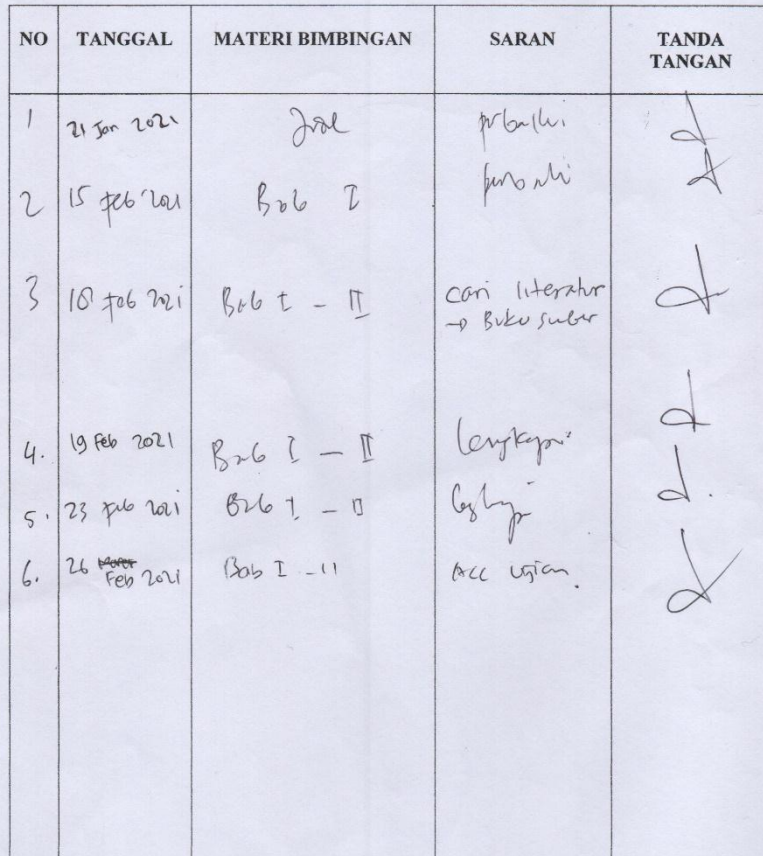 NO TANGGAL MATERI BIMBINGAN SARAN TANDA TANGAN
1 21 Jan 2021
2 15 Feb 2021 Bab I
3 18 Feb 2021 Bab I - II cari literatur
→ Buku sumber
4. 19 Feb 2021 Bab I - II lengkapi
5. 23 Feb 2021 Bab I - II
6. 26 Feb 2021 Bab I - II ACC ujian.